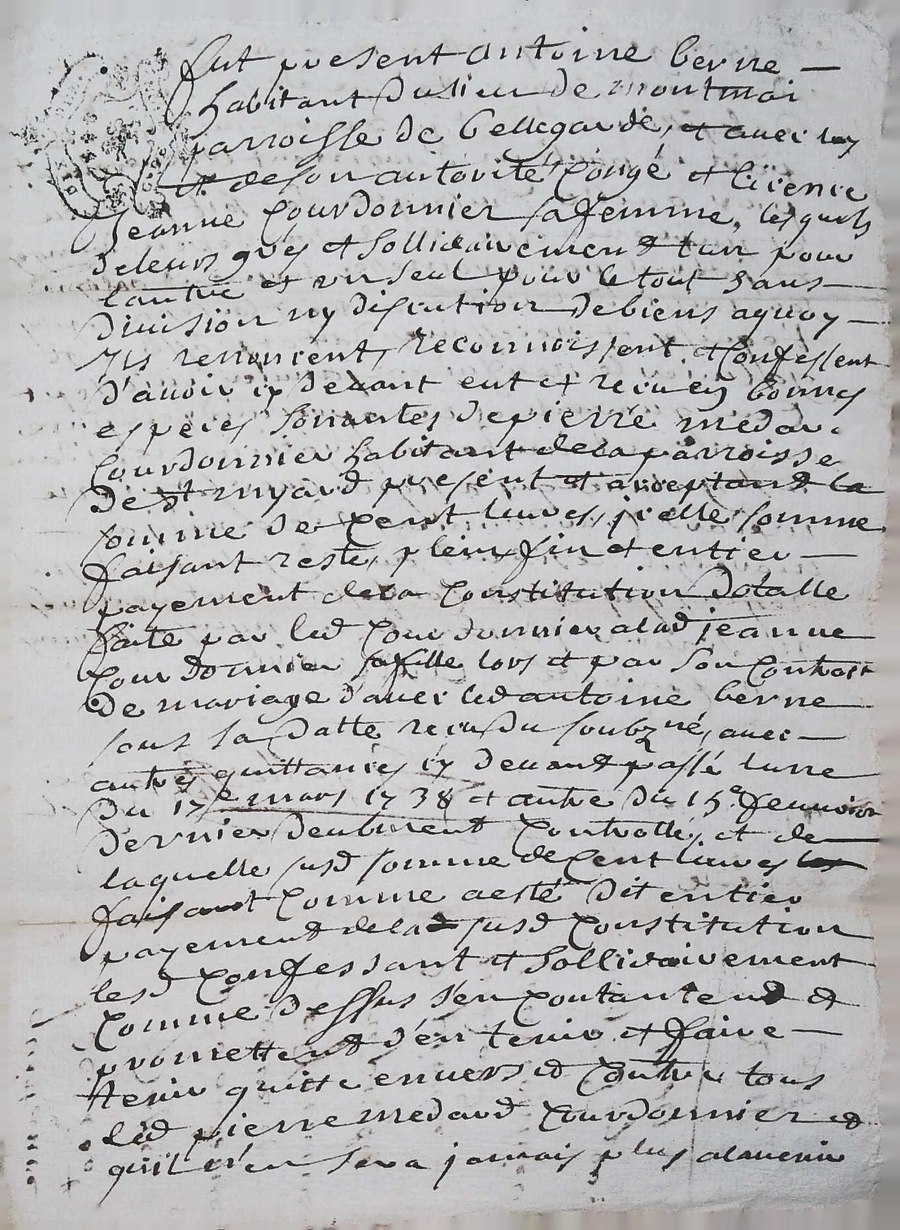 fut present antoine berne
habitant du lieu de montmai
parroisse de bellegarde, et avec luy
et de son autorité congé et licence
Jeanne Courdonnier sa femme, lesquels
de leurs grés et sollidairement l'un pour
l'autre et un seul pour le tout sans
division ny discution de biens a quoy
Ils renoncent, reconnoissent et confessent
d'avoir cy devant eut et receu en bonnes
especes sonnantes de pierre medar
Courdonnier habitant de la parroisse
de st myard present et acceptand la
somme de cent livres, icelle somme
faisant reste, plein, fin et entier
payement de la constitution dotalle
faite par led courdonnier a lad jeanne
Courdonnier sa fille lors et par son contrat
de mariage d'avec led antoine berne
sous sa datte receu du soubzné, avec
autres quittances cy devand passé l'une
du 17e mars 1738 et autre du 15e feuvrier
dernier deubment controllé, et de
laquelle susd somme de cent livres
faisant comme a esté dit entier
payement de la susd constitution
lesd confessant et sollidairement
comme dessus s'en contantend et
promettend d'en tenir et faire
tenir quitte envers et contre tous
led pierre medard courdonnier et
qu'il n'en sera jamais plus a lavenir